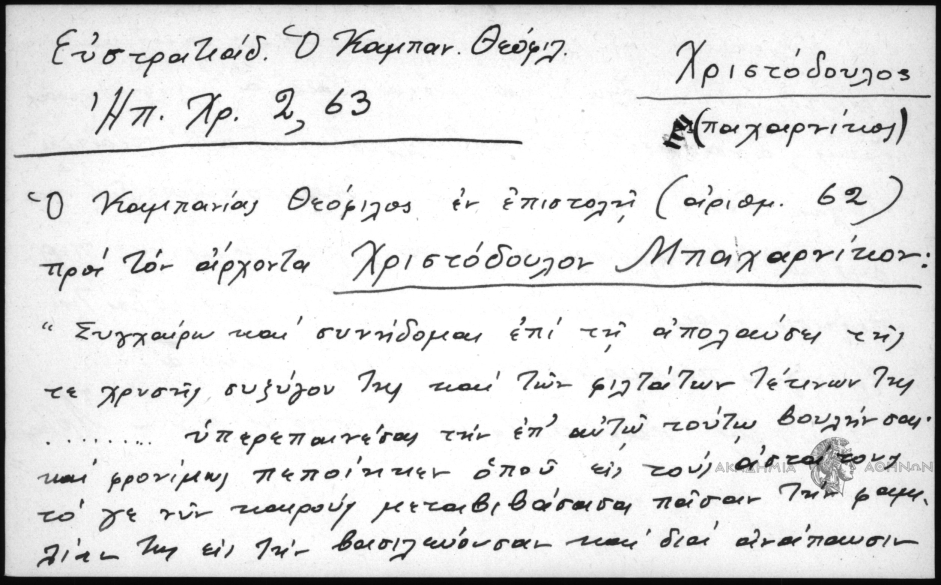 Εὐστρατιάδ. Ὁ Καμπαν. Θεόφιλ.
Ἠπ. Χρ. 2, 63
Χριστόδουλος
(παχαρνίκος)
Ὁ Καμπανίας Θεόφιλος ἐν ἐπιστολῇ (ἀριθμ. 62)
πρός τόν ἄρχοντα Χριστόδουλον Μπαχαρνίκον:
"Συγχαίρω καί συνήδομαι ἐπί τῇ ἀπολαύσει τῆς
τε χρυσῆς συζύγου της καί τῶν φιλτάτων τέκνων της
......... ὑπερεπαινέσας τήν ἐπ' αὐτῷ τούτῳ βουλήν σας·
καί φρονίμως πεποίηκεν ὁποῦ εἰς τούς ἀστάτους
τό γε νῦν καιρούς μεταβιβάσασα πᾶσαν τήν φαμι-
λίαν της εἰς τήν βασιλεύουσαν καί διά ἀνάπαυσιν
ΑΚΑΔΗΜΙΑ ΑΘΗΝΩΝ